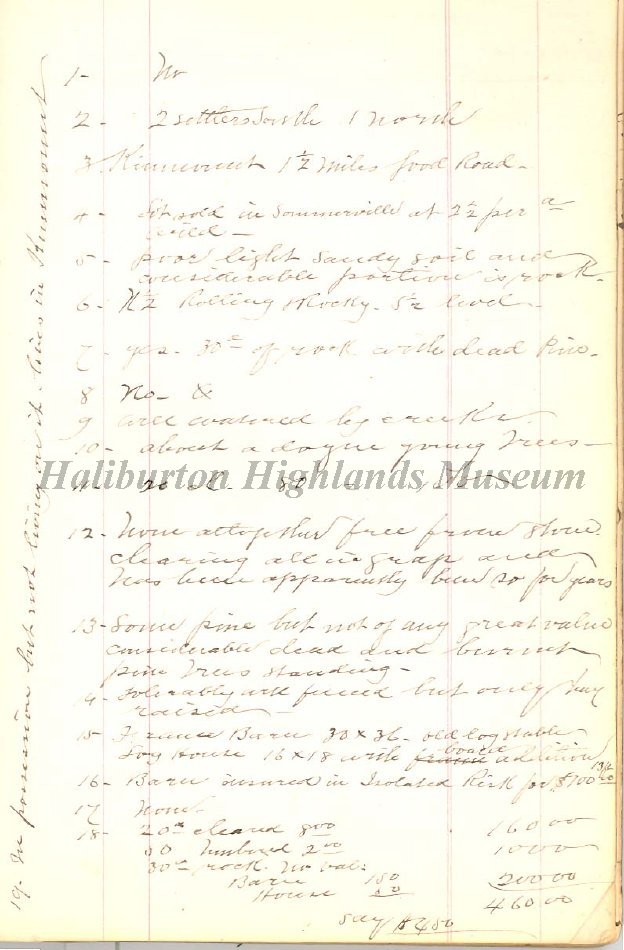 1- No
2- 2 settlers South 1 North
3. Kinmount 1½ miles good Road-
4- Lot sold in Sommerville at 2½ per a
wild-
5- poor light sandy soil and
considerable portion is rock.
6- N½ Rolling & Rocky. S½ level-
7- yes. 30 of rock with dead Pine.
8 No-
9 well watered by creeks
10- about a dozen young trees-
11- 20 80
12- None altogether free from stone
clearing all in grass and
has been apparently been so for years
13- Some pine but not of any great value
considerable dead and burnt
pine trees standing-
14- Tolerably well fenced but only hay
raised-
15- Frame Barn 30 x 36- old log stable
Log House 16 x 18 with frame board addition
16- Barn insured in Isolated Risk for $100
17 None-
18- 20 cleared 8.00 160 00
50 timbered 2.00 100 00
30 rock. No val.
Barn 150
House 50 200 00
460 00
say $450
19- In possession but not living on it lives in Kinmount
Haliburton Highlands Museum